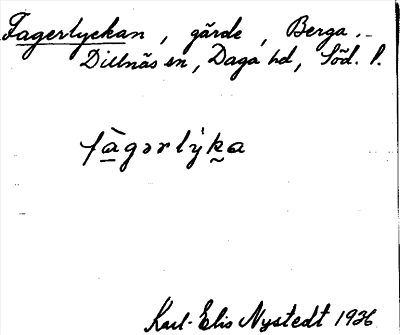 Fagerlyckan, gärde, Berga.
Dillnäs sn, Daga hd, Söd. l.
fàgərlýka
Karl-Elis Nystedt 1936